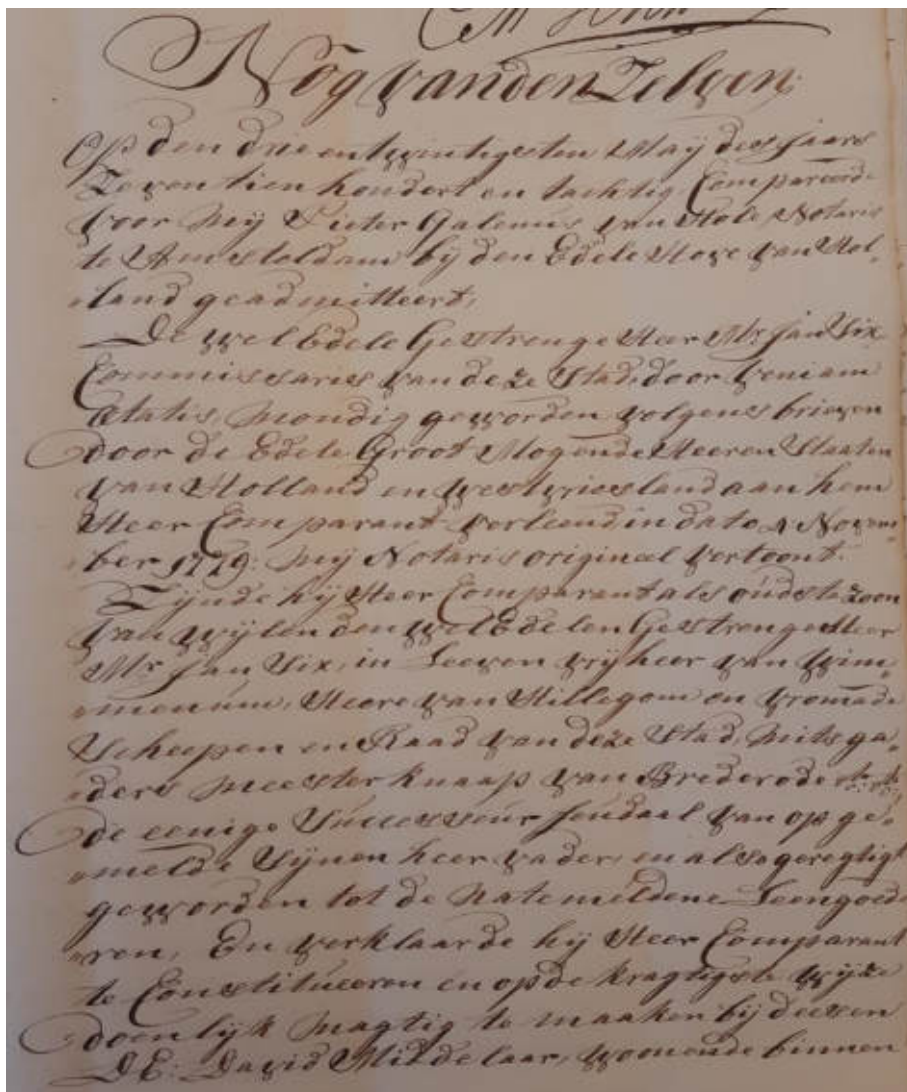 Nog van den Zelven
Op den drie en twintigsten Maÿ des Jaars
Zeventien hondert en tachtig Compareerde
voor mÿ Pieter Galenus van Hole Notaris
te Amsteldam bÿ den Edele Hove van Hol„
„land geadmitteert,
De wel Edele Gestrenge Heer Mr. Jan Six
Commissaris van deze Stad, door veniam
ætatis, mondig geworden volgens brieven
door de Edele Groot Mogende Heeren Staaten
van Holland en westvriesland aan hem
Heer Comparant verleend in dato 4 Novem„
„ber 1779. mÿ Notaris origineel vertoont.
Zÿnde hÿ Heer Comparant als oudste zoon
van wÿlen den wel Edelen Gestrenge Heer
Mr. Jan Six, in Leeven vrÿheer van Wim„
„menum, Heere van Hillegom en vromade
Scheepen en Raad van deze Stad, mitsga„
„ders meesterknaap van Brederode etc: etc:
de eenige Successeur feudaal van op ge„
„melde Sÿnen heer vader, en alzo geregtigt
geworden tot de natemeldene Leengoed
„ren, En verklaarde hÿ Heer Comparant
te Constitueeren en op de kragtigste wÿze
doenlÿk magtig te maaken bÿ deezen
D.E: David Middelaar, woonende binnen